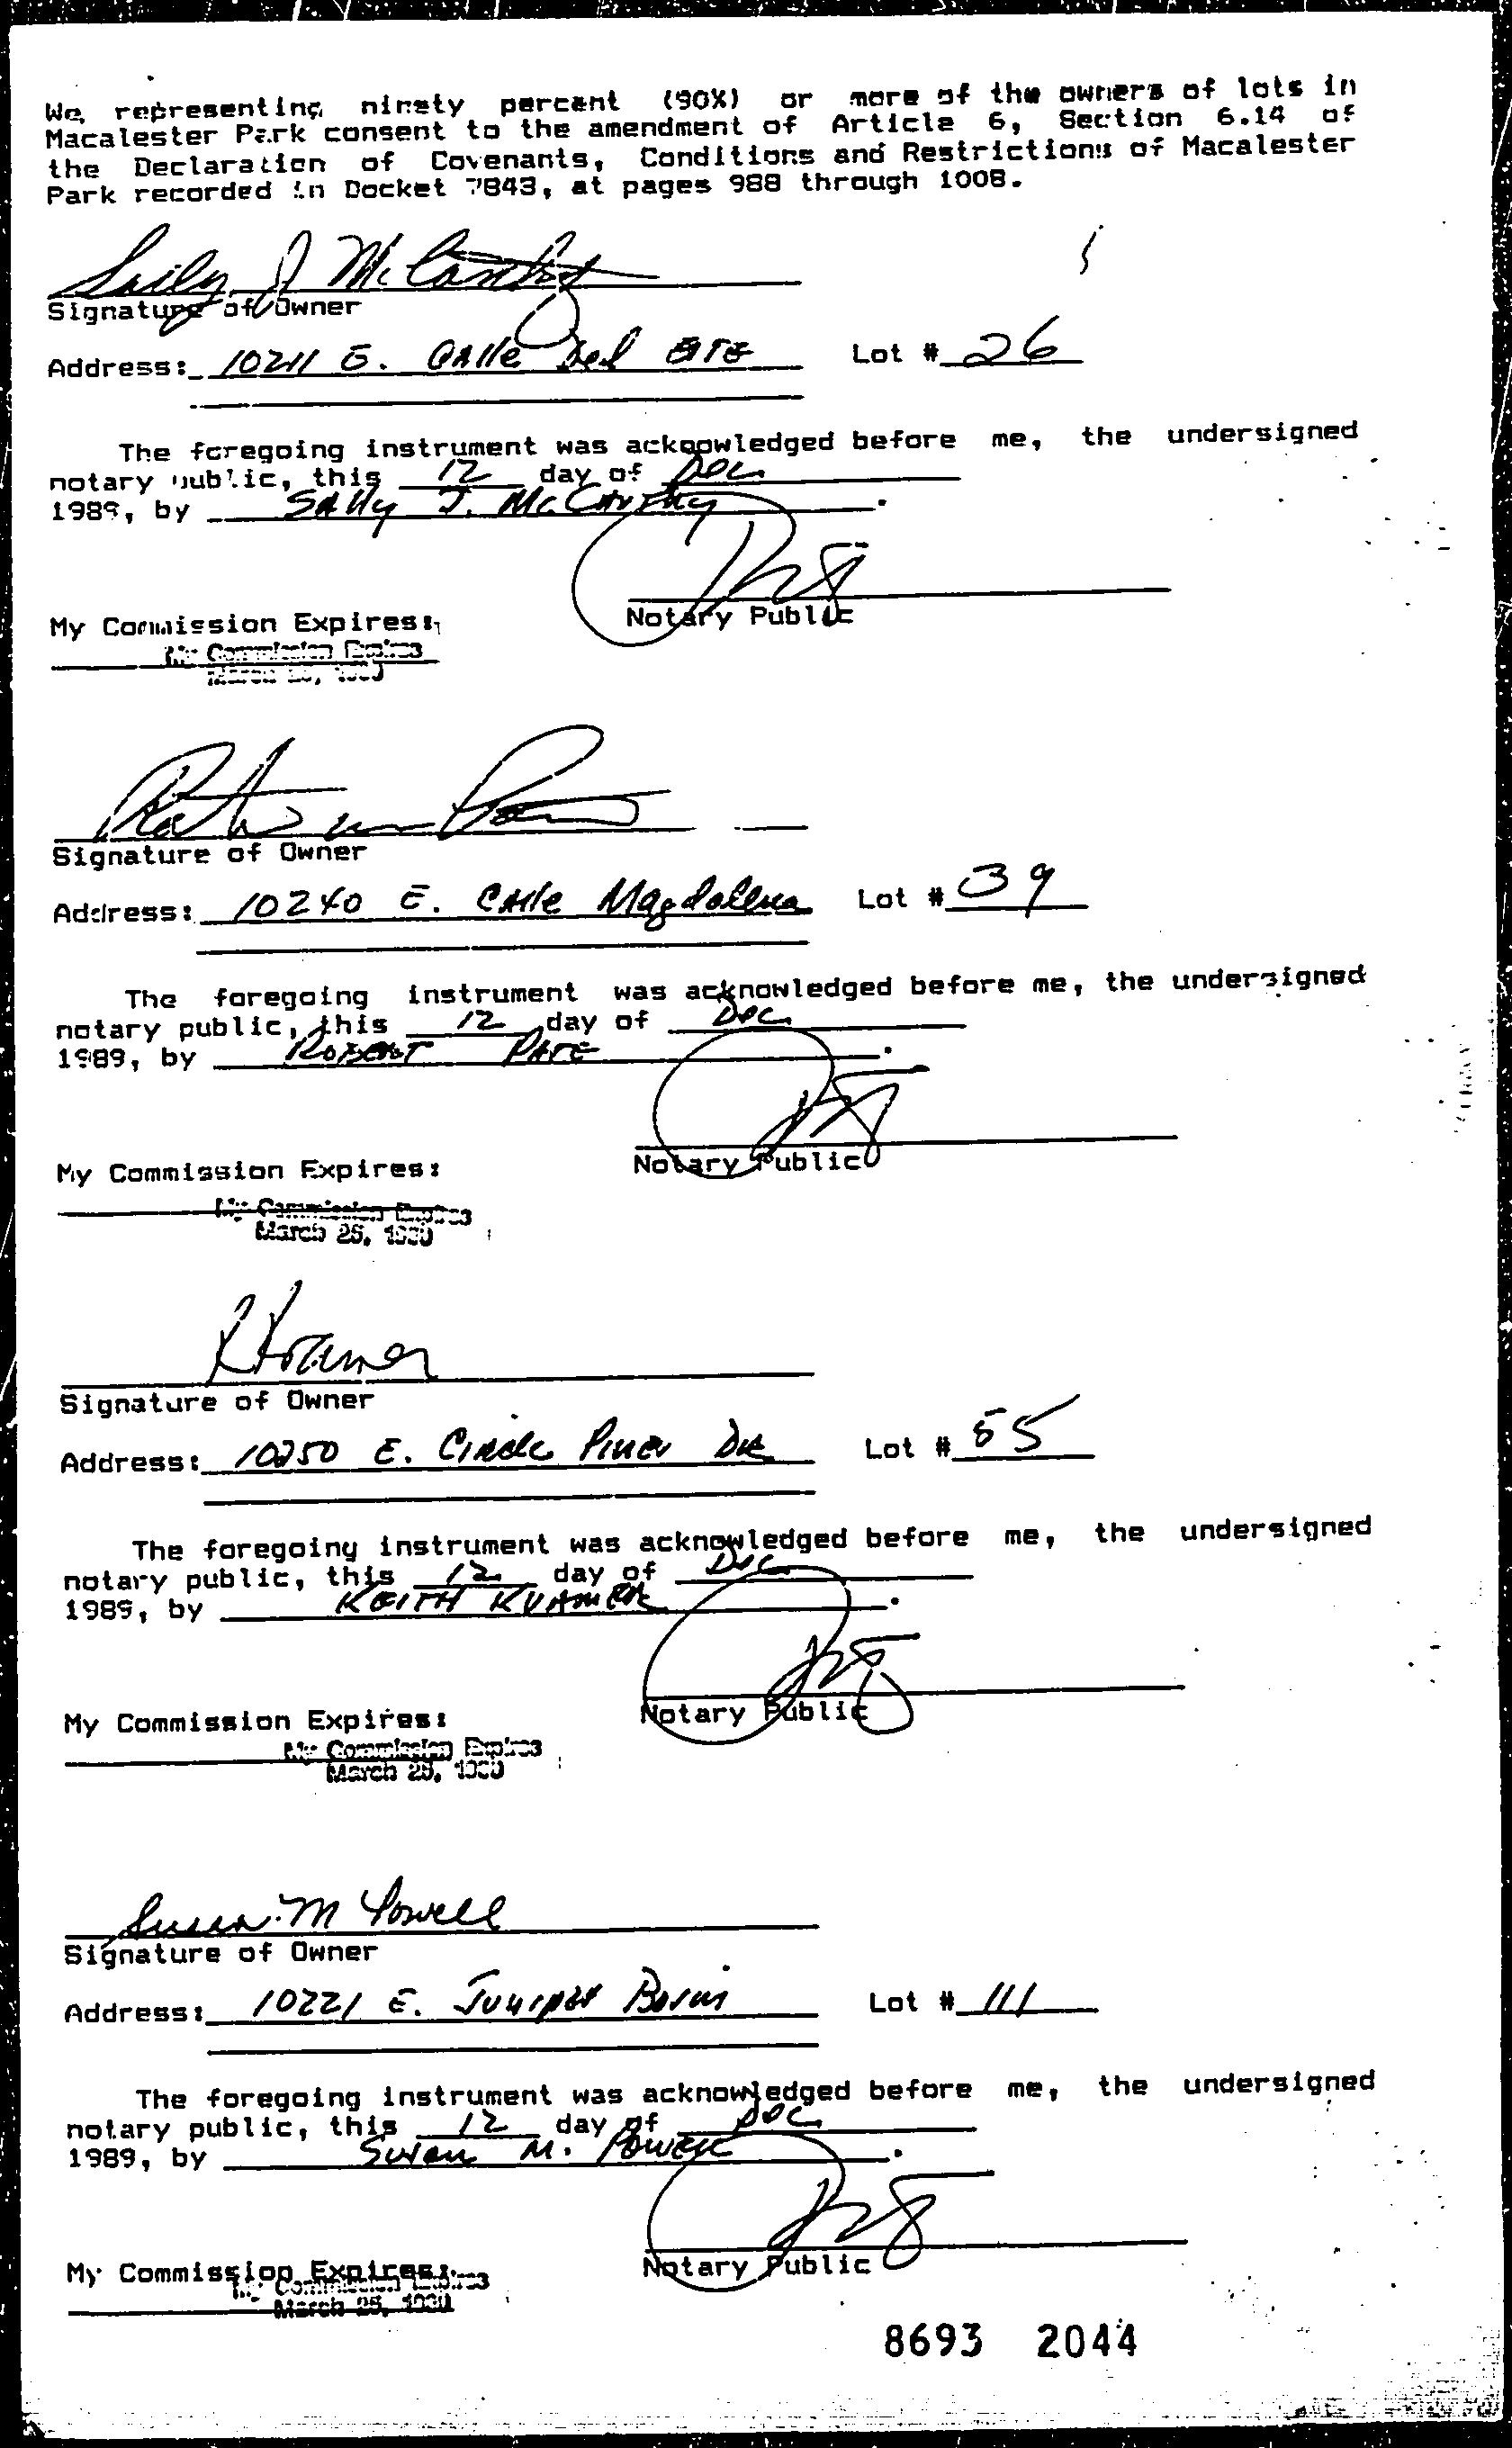 We, representing ninety percent (90%) or more of the owners of lots in
Macalester Park consent to the amendment of Article 6, Section 6.14 of
the Declaration of Covenants, Conditions and Restrictions of Macalester
Park recorded in Docket 7843, at pages 988 through 1008.
Sally J McCarthy
Signature of Owner
Address: 10211 E. CAlle Del Lot # 26
The foregoing instrument was acknowledged before me, the undersigned
notary public, this 12 day of Dec
1989, by SAlly J. McCarthy.
Notary Public
My Commission Expires:
My Commission Expires
Signature of Owner
Address: 10240 E. CAlle Magdalena Lot # 39
The foregoing instrument was acknowledged before me, the undersigned
notary public, this 12 day of Dec
1989, by ROBERT PATE.
Notary Public
My Commission Expires:
My Commission Expires
March 25, 1990
K Kramer
Signature of Owner
Address: 10250 E. Circle Pines DR Lot # 55
The foregoing instrument was acknowledged before me, the undersigned
notary public, this 12 day of Dec
1989, by KEITH KRAMER.
Notary Public
My Commission Expires:
My Commission Expires
March 25, 1990
Susan M Powell
Signature of Owner
Address: 10221 E. Juniper Lot # 111
The foregoing instrument was acknowledged before me, the undersigned
notary public, this 12 day of Dec
1989, by Susan M. Powell.
Notary Public
My Commission Expires:
My Commission Expires
March 25, 1990
8693 2044